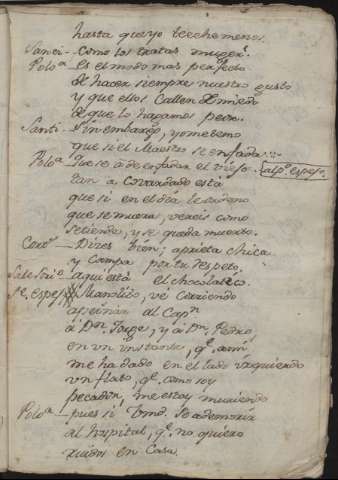 hasta que yo le eche menos.
Santi - Como los tratas muger.
Polo.ª Es el modo mas perfecto
de hacer siempre nuestro gusto
y que ellos Callen de miedo
de que lo hagamos peor.
Santi - Sin embargo, yo me temo
que si el Maestro se enfada...
Polo.ª Que se á de enfadar el viejo. salg.ᵉ espeso.
tan a covardado está
que si en el dia le ordeno
que se muera, vereis como
se tiende, y se queda muerto.
Coro.ˢ Dices bien; aprieta chica
y Compa por tu respeto,
aqui está el chocolate.
Manolito, vé corriendo
á peinar al Cap.ⁿ
á D.ⁿ Jorge, y á D.ⁿ Pedro
en un instante, q.ᵉ á mi
me ha dado en el lado izquierdo
un flato, q.ᵉ como soy
pecador, me estoy muriendo
Polo.ª pues si Vmd. se ademoria
al hospital, q.ᵉ no quiero
ruidos en Casa.